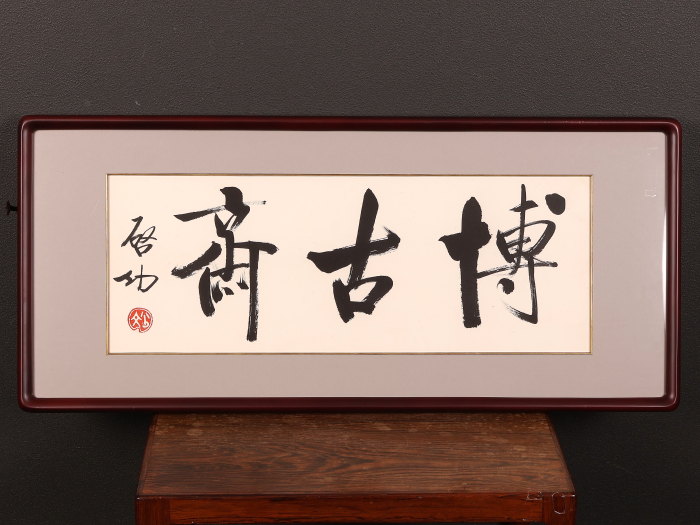 博古斋
启功